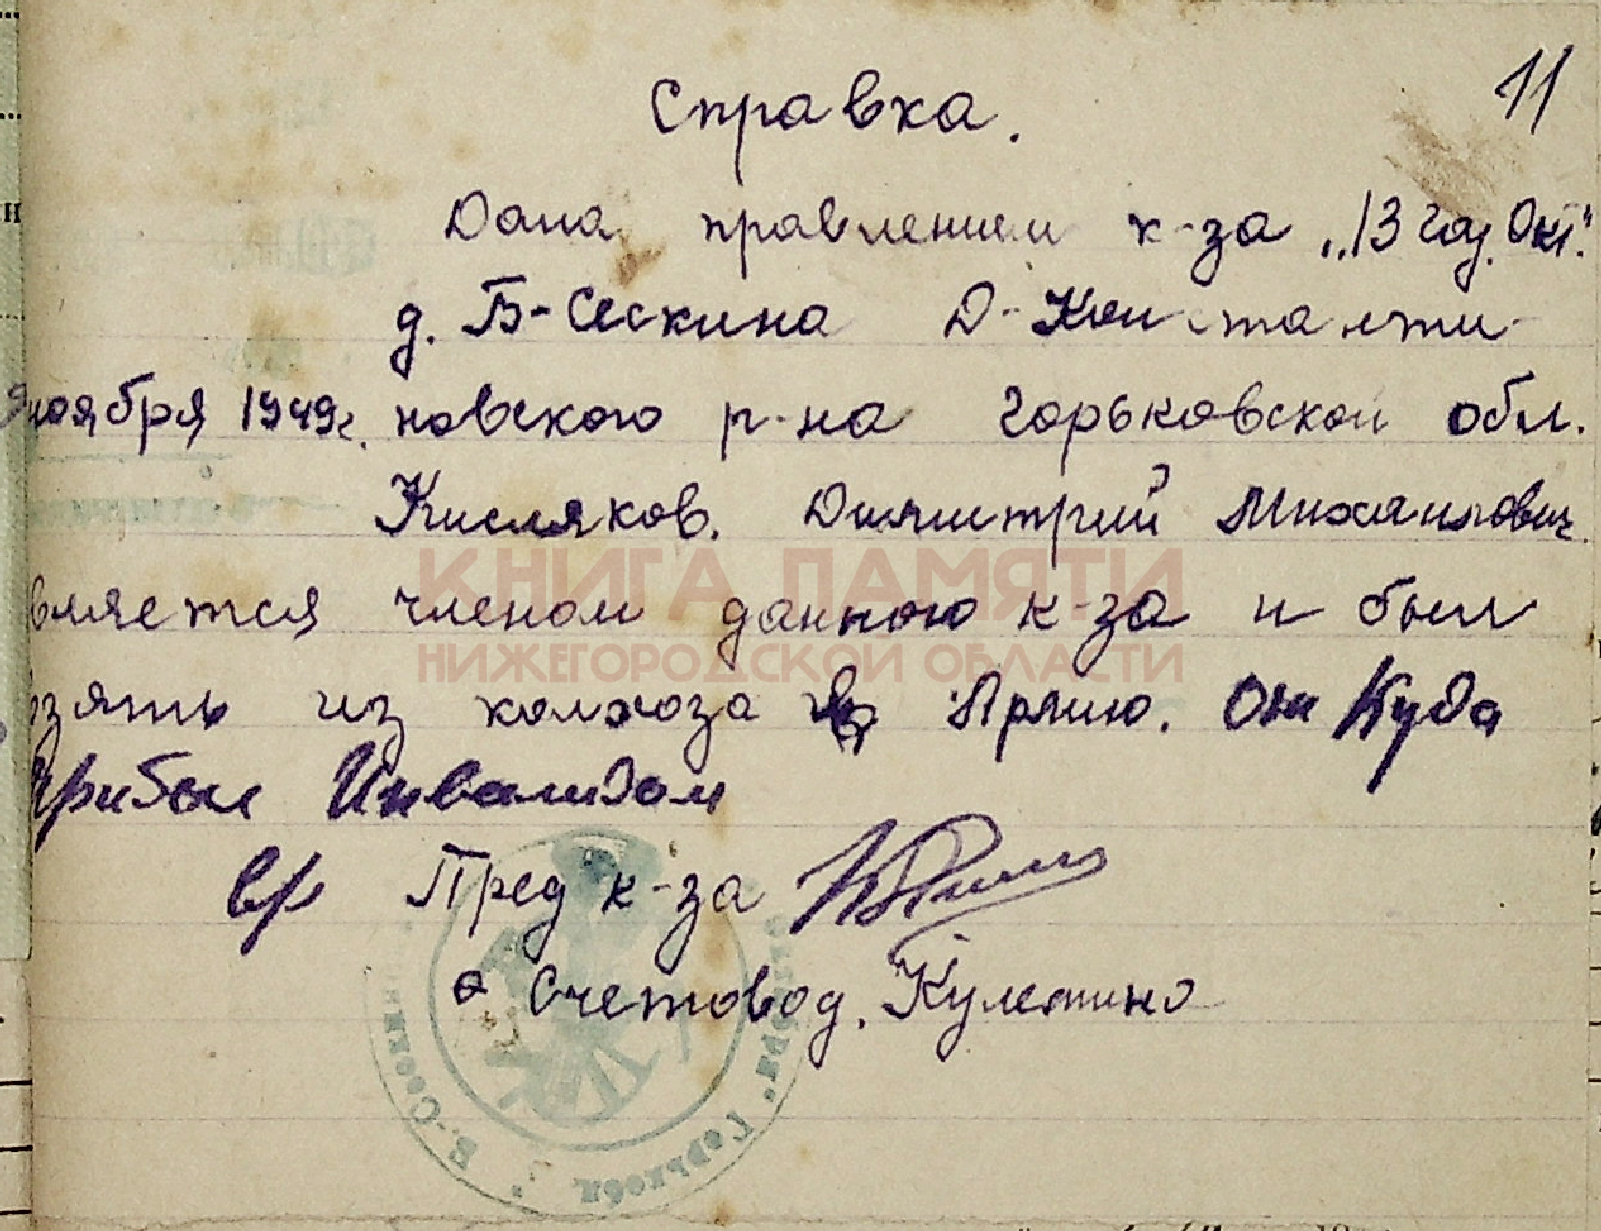 11
Справка.
Дана правлением к-за „13 год. Окт."
д. Б-Сескина Д-Константи-
ноября 1949г. новского р-на Горьковской обл.
Кисляков. Димитрий Михаилович
вляется членом данного к-за и был
взять из колхоза в Армию. Он Куда
Прибыл Инвалидом
вр Пред к-за
Счетовод.
КНИГА ПАМЯТИ
НИЖЕГОРОДСКОЙ ОБЛАСТИ